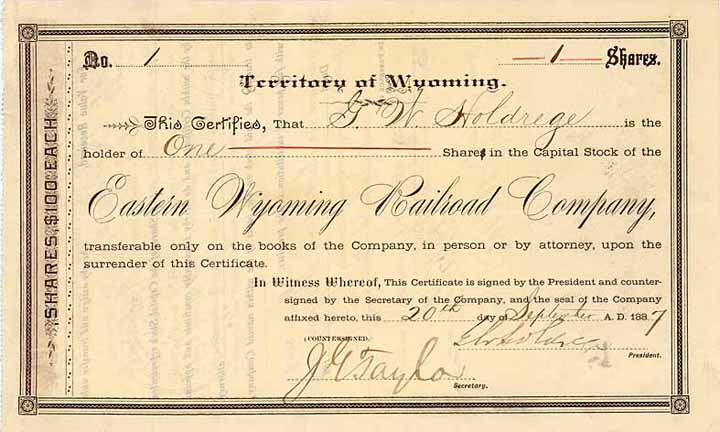 No. 1 1 Shares.
Territory of Wyoming.
This Certifies, That G. W. Holdrege is the
holder of One Shares in the Capital Stock of the
Eastern Wyoming Railroad Company,
transferable only on the books of the Company, in person or by attorney, upon the
surrender of this Certificate.
In Witness Whereof, This Certificate is signed by the President and counter-
signed by the Secretary of the Company, and the seal of the Company
affixed hereto, this 20th day of September A. D. 1887
(COUNTERSIGNED.) G W Holdrege
President.
J G Taylor
Secretary.
SHARES, $100 EACH